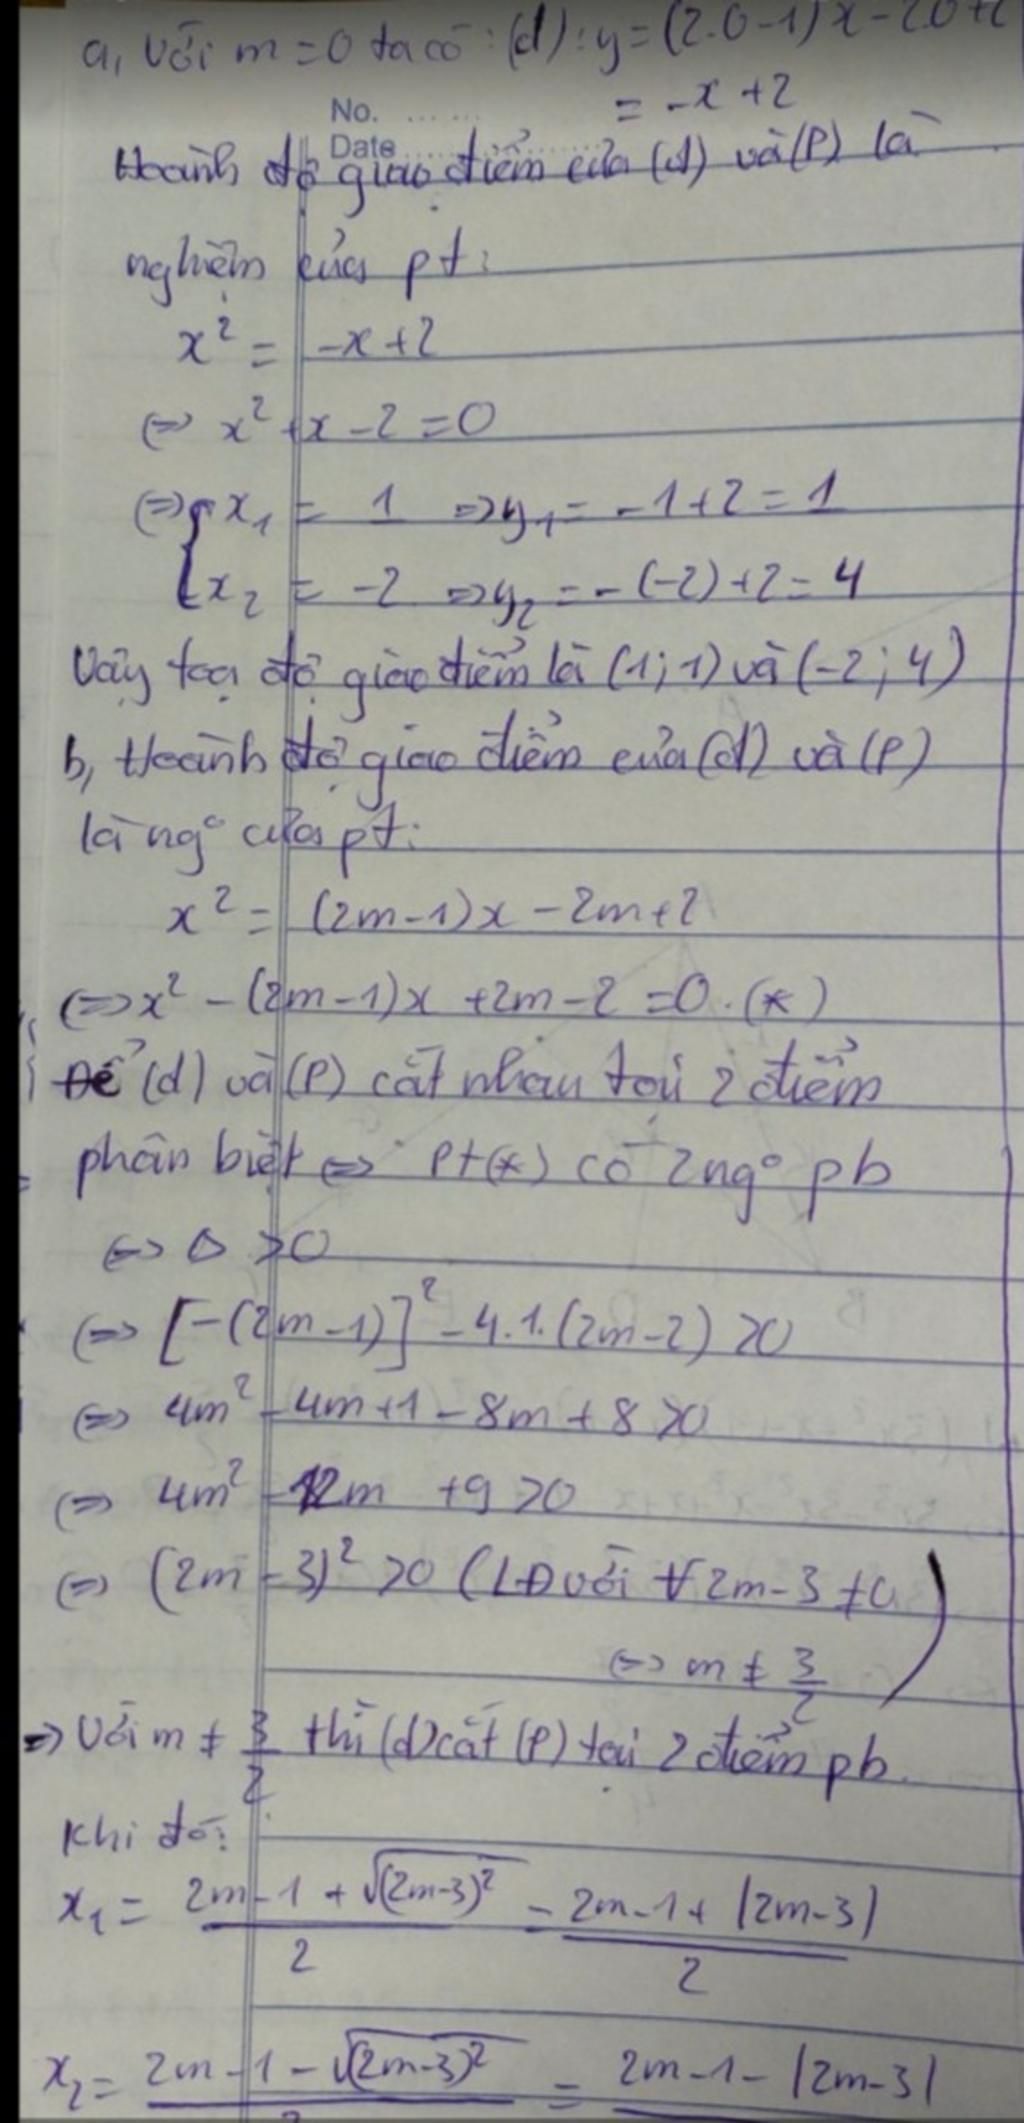 a, Với m = 0 ta có : (d) : y = (2.0-1)x - 2.0 + 2
= -x + 2
No. ... ...
Date ...........
Hoành độ giao điểm của (d) và (P) là
nghiệm của pt:
x² = -x + 2
⇔ x² + x - 2 = 0
⇔ { x₁ = 1 ⇒ y₁ = -1 + 2 = 1
x₂ = -2 ⇒ y₂ = -(-2) + 2 = 4
Vậy toạ độ giao điểm là (1; 1) và (-2; 4)
b, Hoành độ giao điểm của (d) và (P)
là ng° của pt:
x² = (2m-1)x - 2m + 2
⇔ x² - (2m-1)x + 2m - 2 = 0. (*)
Để (d) và (P) cắt nhau tại 2 điểm
phân biệt ⇔ Pt(*) có 2 ng° pb
⇔ Δ > 0
⇔ [-(2m-1)]² - 4.1.(2m-2) > 0
⇔ 4m² - 4m + 1 - 8m + 8 > 0
⇔ 4m² - 12m + 9 > 0
⇔ (2m-3)² > 0 (LĐ với ∀ 2m-3 ≠ 0
⇔ m ≠ 3/2 )
⇒ Với m ≠ 3/2 thì (d) cắt (P) tại 2 điểm pb.
Khi đó:
x₁ = (2m-1+√(2m-3)²)/2 = (2m-1+|2m-3|)/2
x₂ = (2m-1-√(2m-3)²)/2 = 2m-1-|2m-3|